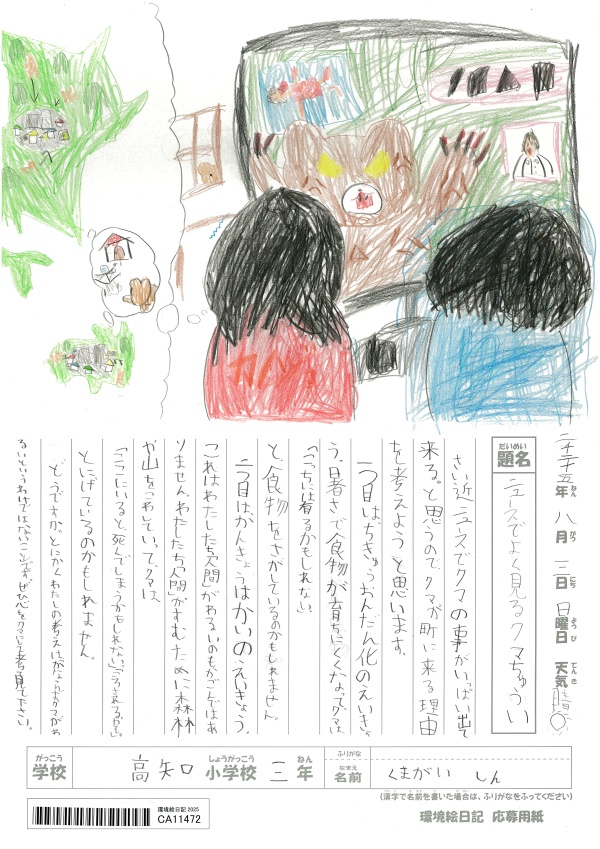 二千二十五年 八月 三日 日曜日 天気 晴
ねん がつ にち ようび てんき
だいめい
題名
ニュースでよく見るクマちゅうい
さい近ニュースでクマの事がいっぱい出て
来る。と思うので、クマが町に来る理由
を考えようと思います。
一つ目は、ちきゅうおんだん化のえいきょ
う。暑さで食物が育ちにくくなってクマは、
「こっちには有るかもしれない。」
と、食物をさがしているのかもしれません。
二つ目はかんきょうはかいのえいきょう。
これはわたしたち「人間」がわるいのもかごんではあ
りません。わたしたち「人間」がすむために森林
や山をこわしていって、クマは、
「ここにいると死んでしまうかもしれない。」「ころされる。」
とにげているのかもしれません。
どうですか。とにかくわたしの考えは、かならずクマがわ
るいというわけではないことです。ぜひ心をクマにして考え見て下さい。
がっこう
学校
高知 小学校 三年
しょうがっこう ねん
ふりがな
なまえ
名前
くまがい しん
(漢字で名前を書いた場合は、ふりがなをふってください)
環境絵日記 2025
CA11472
環境絵日記 応募用紙